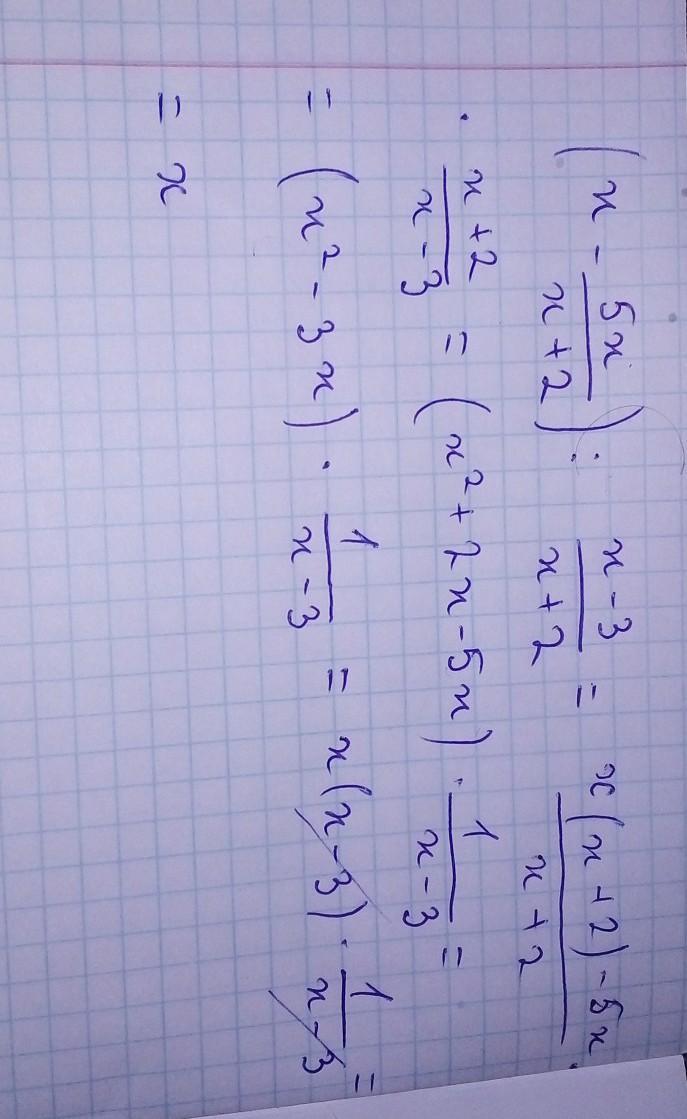 (x - \frac{5x}{x+2}) : \frac{x-3}{x+2} = \frac{x(x+2)-5x}{x+2} ·
· \frac{x+2}{x-3} = (x² + 2x - 5x) · \frac{1}{x-3} =
= (x² - 3x) · \frac{1}{x-3} = x(x-3) · \frac{1}{x-3} =
= x